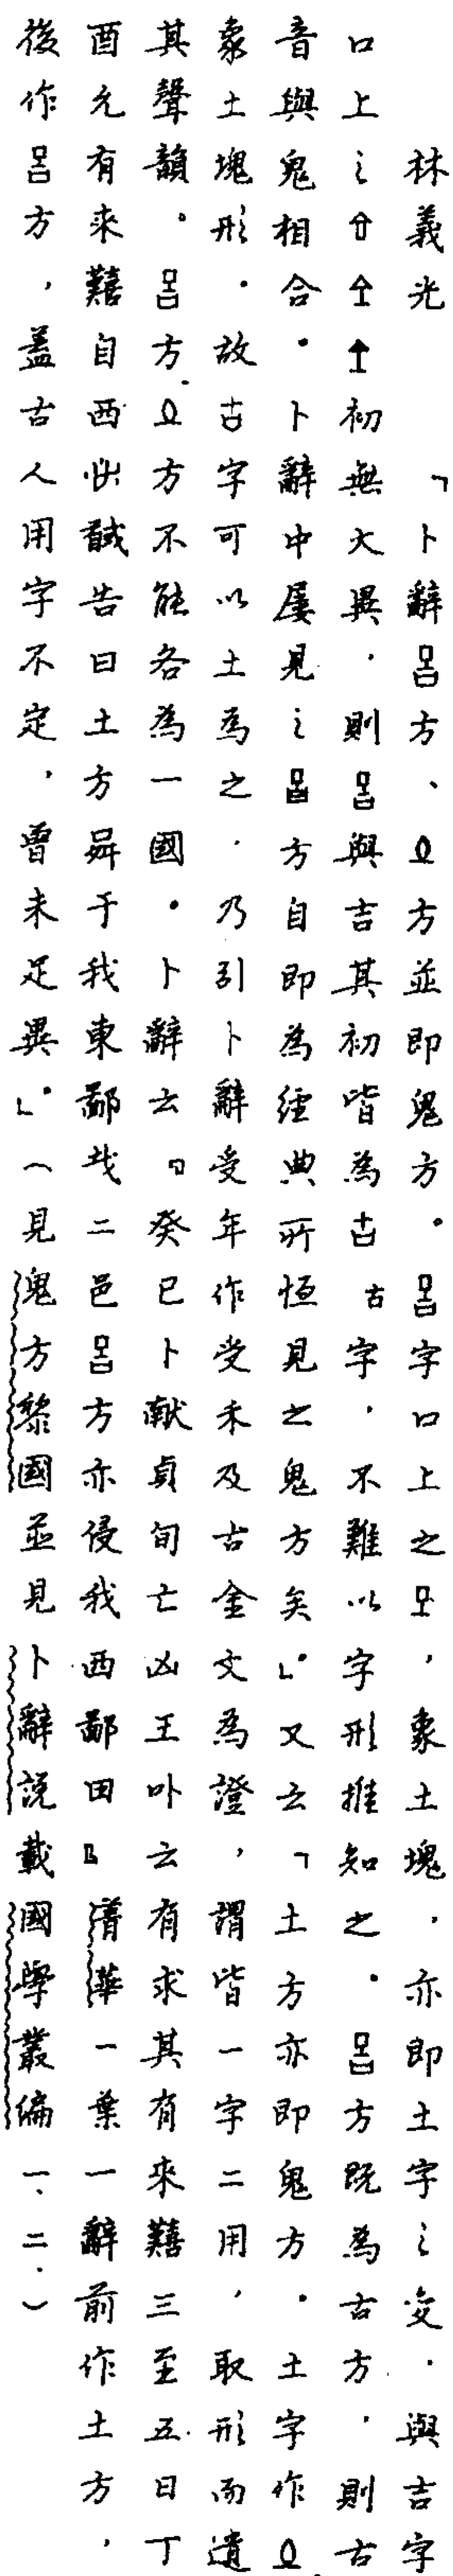 林義光　「卜辭𢀛方、土方並即鬼方。𢀛字口上之，象土塊，亦即土字之变，與吉字
口上之⇧初無大異，則𢀛與吉其初皆為古字，不難以字形推知之。𢀛方既為古方，則古
音與鬼相合。卜辭中屢見之𢀛方自即為經典所恒見之鬼方矣」。又云「土方亦即鬼方。土字作
象土塊形。故古字可以土為之，乃引卜辭受年作受禾及古金文為證，謂皆一字二用，取形而遺
其聲韻。𢀛方土方不能各為一國。卜辭云『癸巳卜貞旬亡凶王卟云有求其有來囏三至五日丁
酉允有來囏自西馘告曰土方于我東鄙𢦏二邑𢀛方亦侵我西鄙田』菁華一葉一辭前作土方，
後作𢀛方，蓋古人用字不定，曾未足異」。（見鬼方黎國並見卜辭說載國學叢編一、二．）